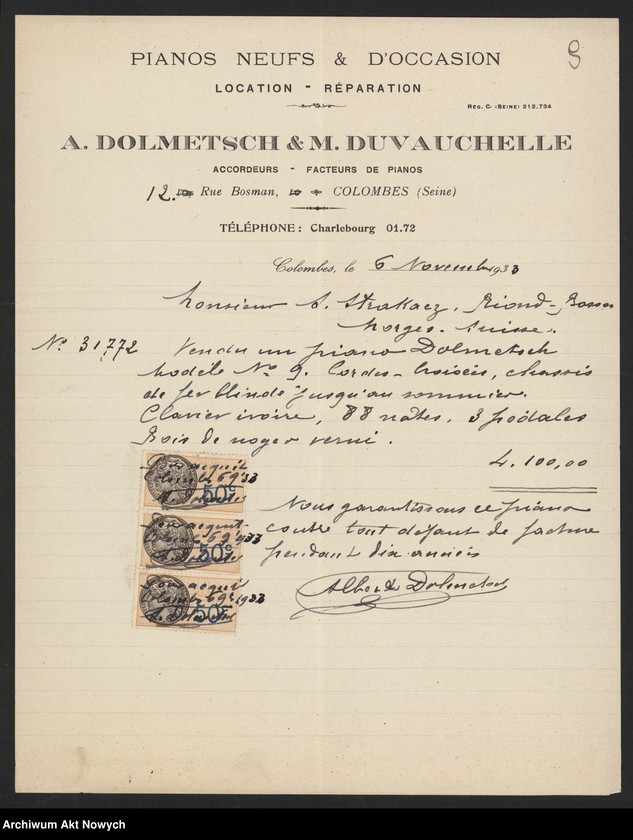 PIANOS NEUFS & D'OCCASION
LOCATION - RÉPARATION
REG. C. (SEINE) 212.734
A. DOLMETSCH & M. DUVAUCHELLE
ACCORDEURS - FACTEURS DE PIANOS
12. Rue Bosman, COLOMBES (Seine)
TÉLÉPHONE: Charlebourg 01.72
Colombes, le 6 Novembre 1933
Monsieur A. Strakacz. Riond-Bosson
Morges. Suisse.
No 31772 Vendu un piano Dolmetsch
Modèle No 9. Cordes-Croisées, chassis
de fer blindé jusqu'au sommier.
Clavier ivoire, 88 notes. 3 pédales
Bois de noyer verni.
4.100,00
Nous garantissons ce piano
contre tout défaut de facture
pendant dix années
Albert Dolmetsch
Pour acquit
50c
Pour acquit
50c
Pour acquit
50c
Archiwum Akt Nowych